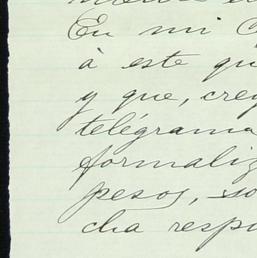 En mi
à este qu
y que, crey
telégrama
formaliz
pesos, so
cha respu